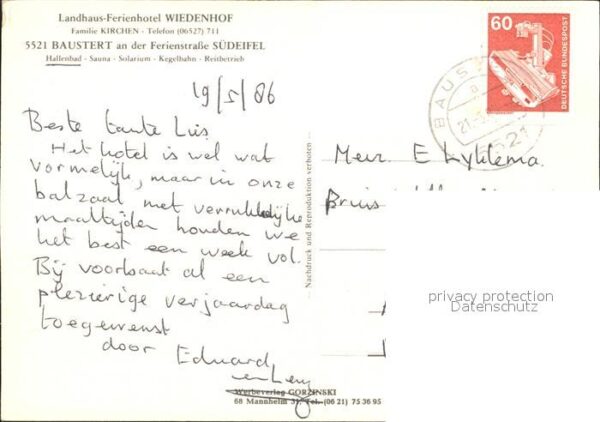 Landhaus-Ferienhotel WIEDENHOF
Familie KIRCHEN - Telefon (06527) 711
5521 BAUSTERT an der Ferienstraße SÜDEIFEL
Hallenbad - Sauna - Solarium - Kegelbahn - Reitbetrieb
19/5/86
Beste tante Lies
Het hotel is wel wat
vormelijk, maar in onze
balzaal met verrukkelijke
maaltijden houden we
het best een week vol.
Bij voorbaat al een
plezierige verjaardag
toegewenst
door Eduard
en Leny
Werbeverlag GORZINSKI
68 Mannheim 31, Tel. (06 21) 75 36 95
Nachdruck und Reproduktion verboten
60
DEUTSCHE BUNDESPOST
BAUS
21.5.
5521
Mevr. E Lyklema.
privacy protection
Datenschutz